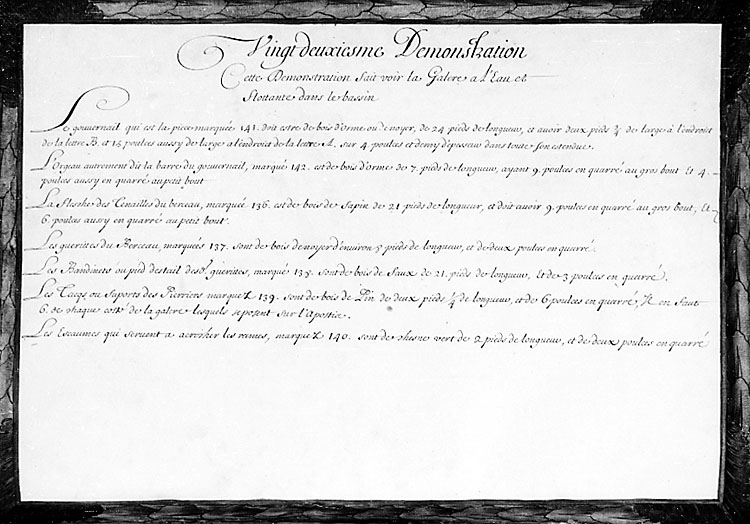 Vingt deuxiesme Demonstration
Cette Demonstration fait voir la Galere a l'Eau et
flottante dans le bassin
Le gouvernail qui est la piece marquée 141. doit estre de bois d'orme ou de noyer, de 24 pieds de longueur, et avoir deux pieds ¼ de large a l'endroit
de la lettre B. et 15 poulces aussy de large a l'endroit de la lettre A. sur 4 poulces et demy d'epesseur dans toute son estendue.
L'Orgeau autrement dit la barre du gouvernail, marqué 142. est de bois d'orme de 7. pieds de longueur, ayant 9. poulces en quarré au gros bout Et 4.
poulces aussy en quarré au petit bout
La fleche des Tenailles du berceau, marquée 136. est de bois de Sapin de 21 pieds de longueur, et doit avoir 9. poulces en quarré au gros bout, Et
6 poulces aussy en quarré au petit bout.
Les guerites du Berceau, marquées 137. sont de bois de noyer d'environ 5 pieds de longueur, et de deux poulces en quarré.
Les Bandinets ou pied destail des guerites, marqué 135. sont de bois de faux de 21. pieds de longueur, Et de 3 poulces en quarré.
Les Tacqs ou Suports des Pierriers marquez 139. sont de bois de Pin de deux pieds ¼ de longueur, et de 6 poulces en quarré, Il en faut
6. de chaque costé de la galere lesquels se posent sur l'apostie.
Les Escaumes qui servent a acrocher les rames, marquez 140. sont de chesne vert de 2 pieds de longueur, et de deux poulces en quarré